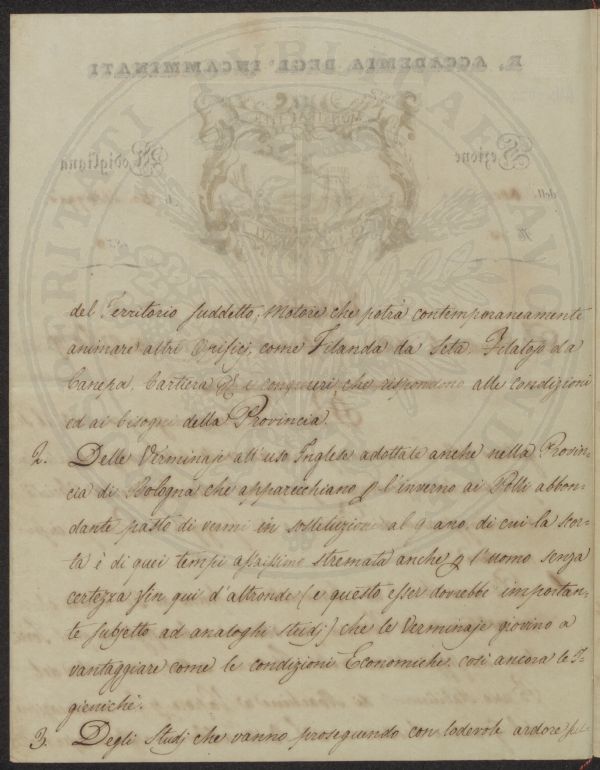 R. ACCADEMIA DEGL' INCAMMINATI
Sezione
Modigliana
del Territorio suddetto, Motore che potrà contemporaneamente
animare altri Opifici, come Filanda da Seta, Filatojo da
Canepa, Cartiera &c e congeneri, che rispondono alle condizioni
ed ai bisogni della Provincia.
2. Delle Verminaje all'uso Inglese adottate anche nella Provin-
cia di Bologna che apparecchiano p l'inverno ai Polli abbon-
dante pasto di vermi in sostituzione al grano, di cui la scor-
ta è di quei tempi assaissimo stremata anche p l'uomo senza
certezza fin qui d'altronde (e questo esser dovrebbe importan-
te subjetto ad analoghi studj) che le Verminaje giovino a
vantaggiare come le condizioni Economiche, così ancora le I-
gieniche.
3. Degli Studj che vanno proseguendo con lodevole ardore